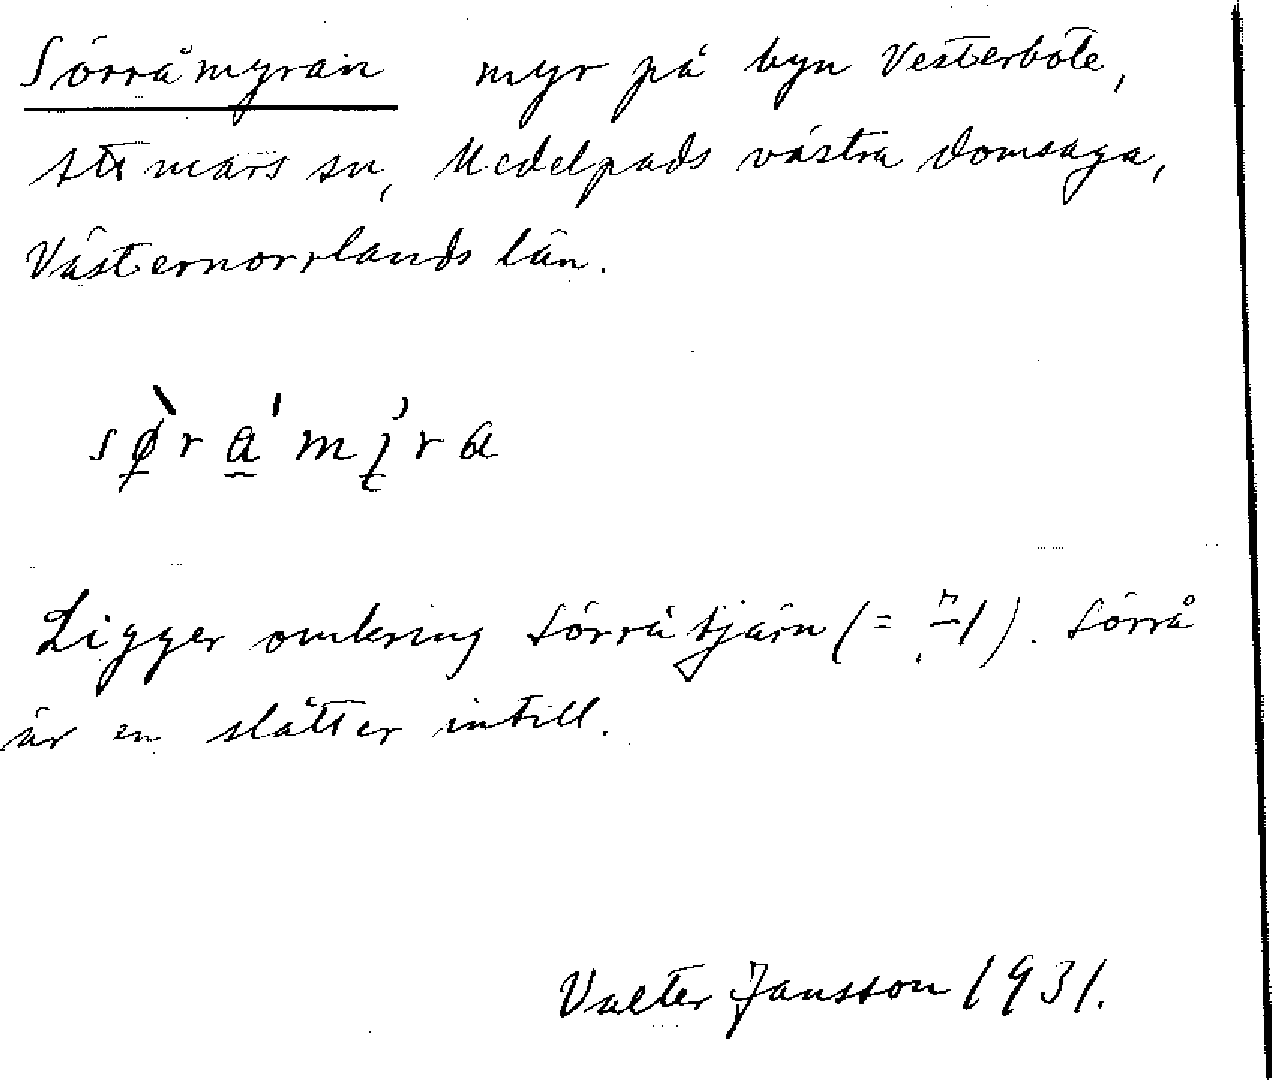 Sörråmyran myr på byn Vesterbote,
Attmars sn, Medelpads västra domsaga,
Västernorrlands län.
Ligger omkring Sörråtjärn (= ). Sörrå
är en slåtter intill.
Valter Jansson 1931.